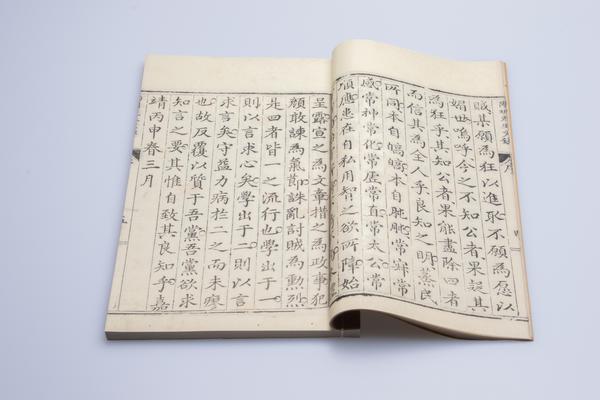 陽明先生文錄
序
賊某願為狂以進取不願為愿以
媚世嗚呼今之不知公者果疑其
為狂乎其知公者果能盡除四者
而信其為全人乎良知之明蒸民
所同本自皜皜本自肫肫常寂常
感常神常化常虛常直常大公常
順應患在自私用智之欲所障始
呈露宣之為文章措之為政事犯
顏敢諫為氣節誅亂討賊為勳烈
是四者皆一之流行也學出于一
則以言求心矣學出于二則以言
求言矣守益力病於二之而未瘳
也故反覆以質于吾黨吾黨欲求
知言之要其惟自致其良知乎嘉
靖丙申春三月